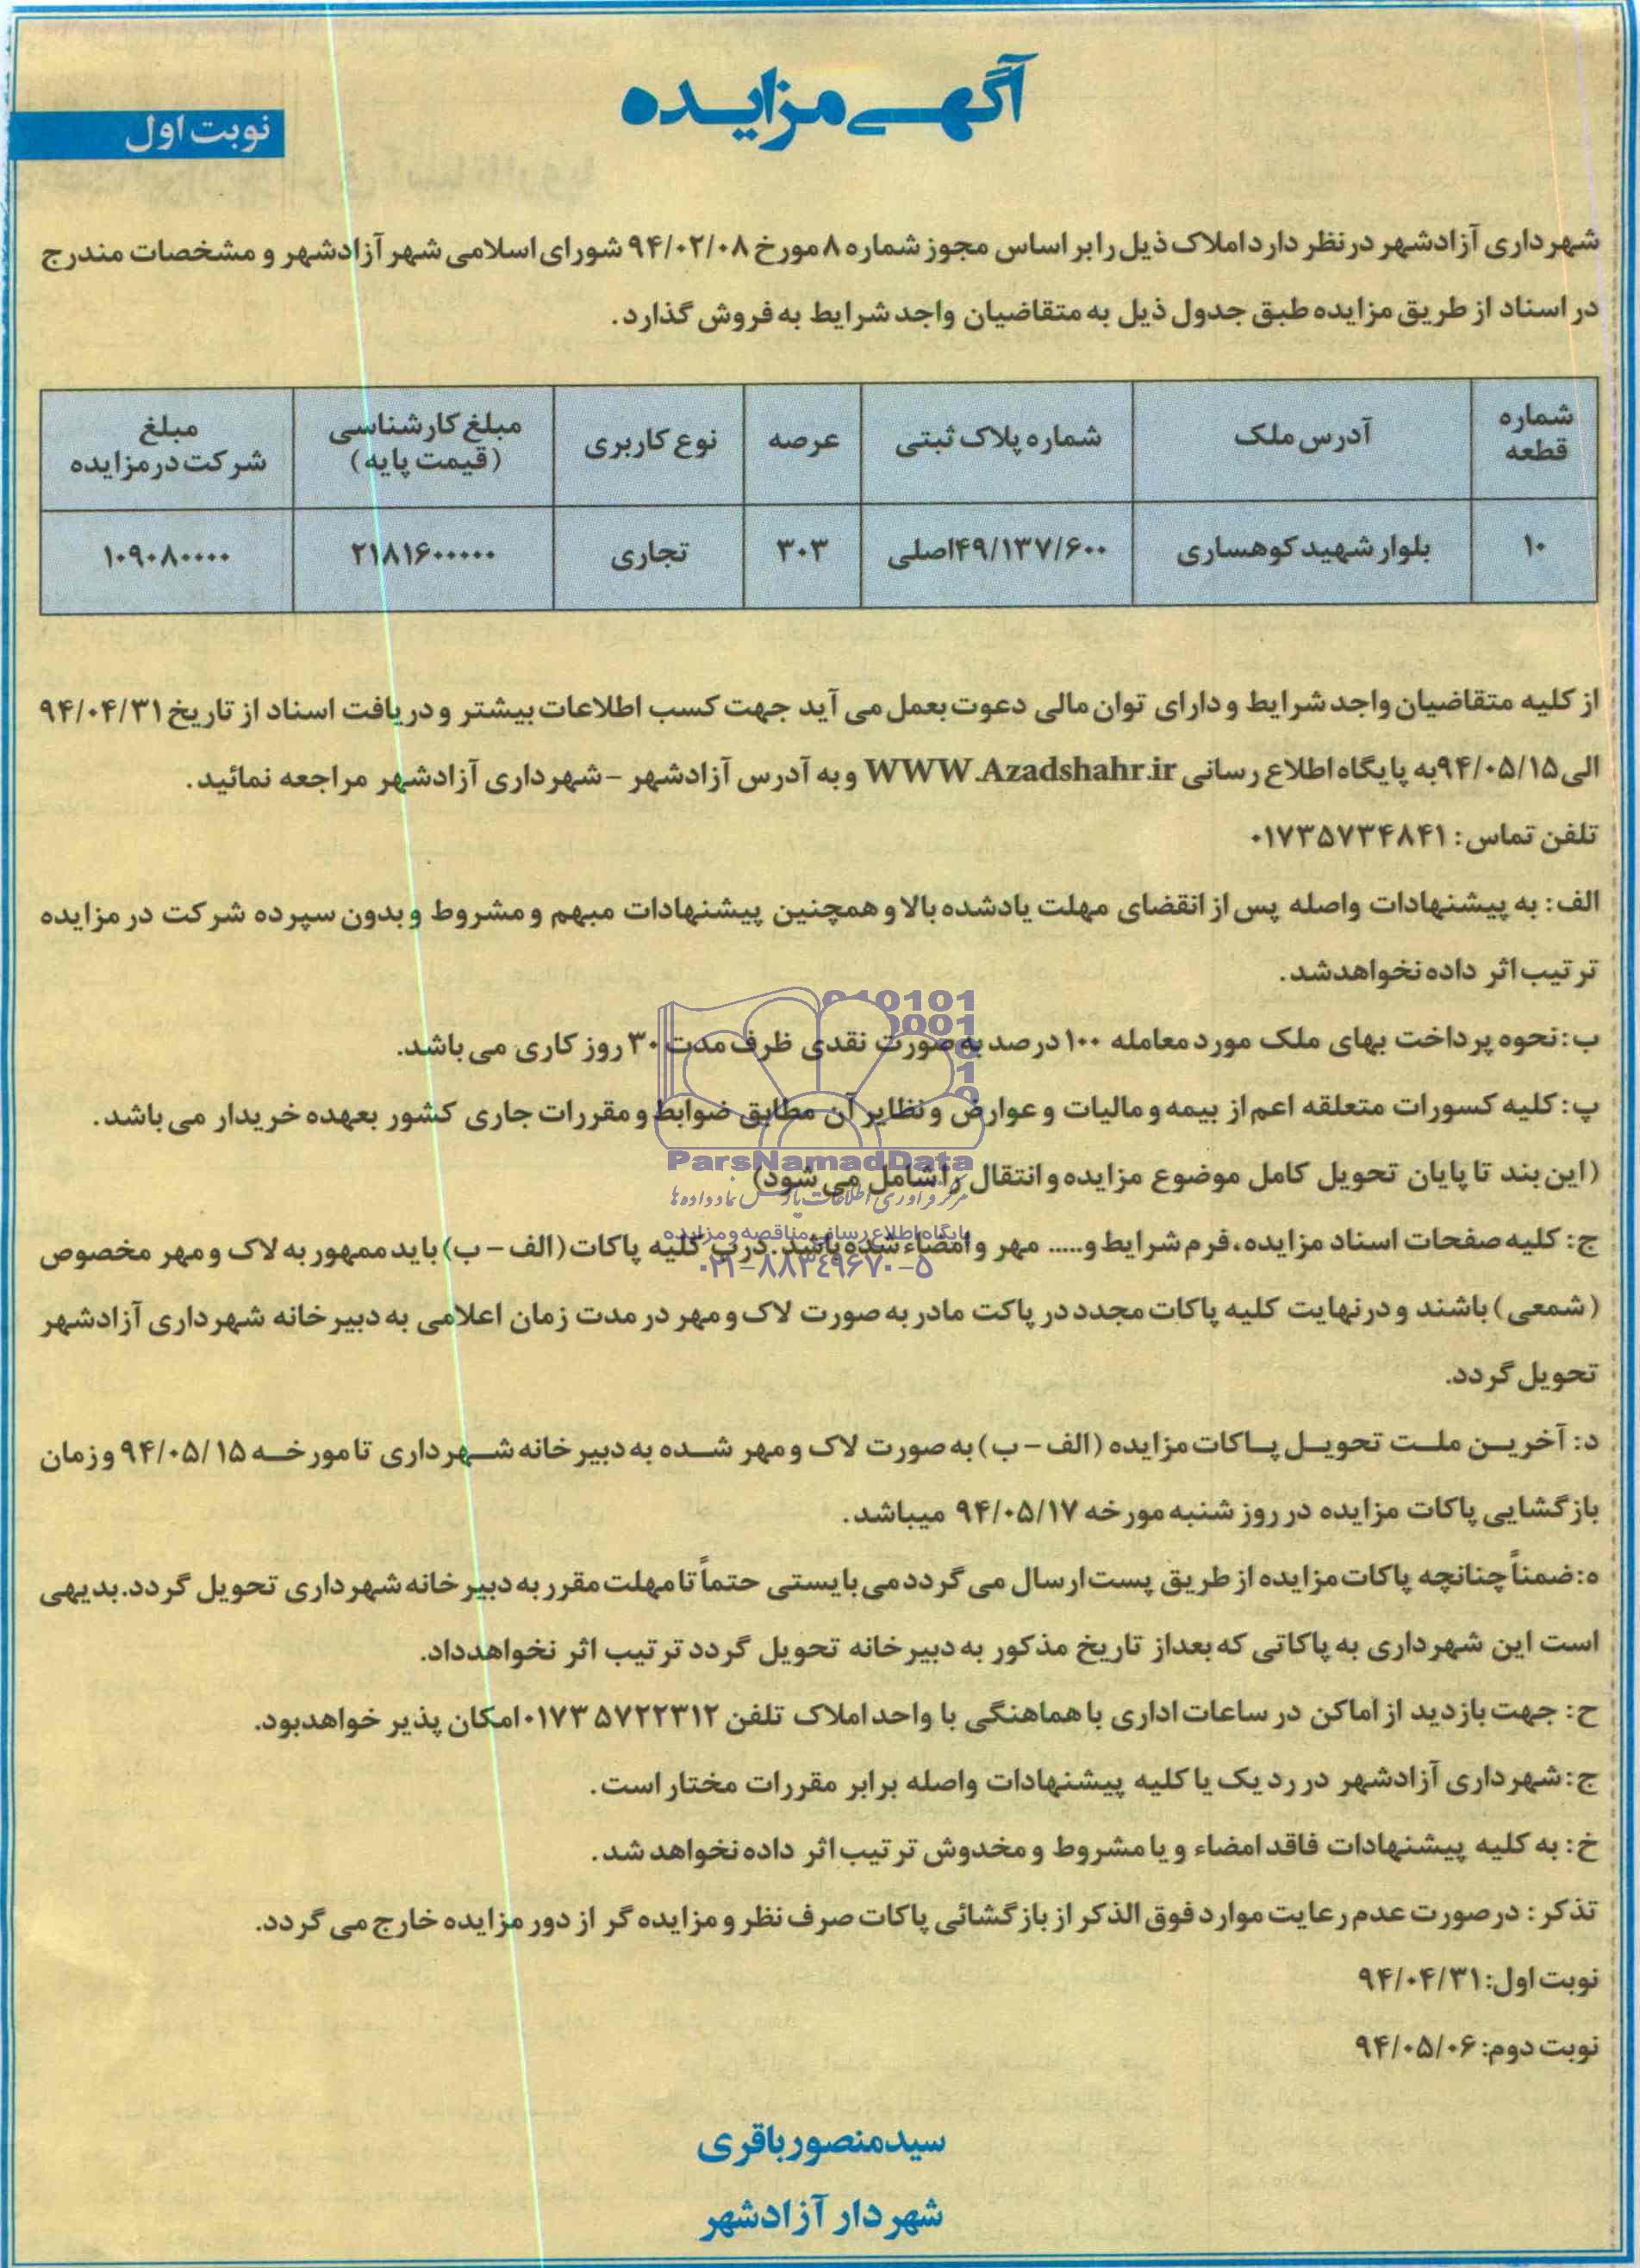 آگهی مزایده
نوبت اول
شهرداری آزادشهر در نظر دارد املاک ذیل را بر اساس مجوز شماره ۸ مورخ ۹۴/۰۲/۰۸ شورای اسلامی شهر آزادشهر و مشخصات مندرج
در اسناد از طریق مزایده طبق جدول ذیل به متقاضیان واجد شرایط به فروش گذارد.
شماره قطعه | آدرس ملک | شماره پلاک ثبتی | عرصه | نوع کاربری | مبلغ کارشناسی (قیمت پایه) | مبلغ شرکت در مزایده
۱۰ | بلوار شهید کوهساری | ۴۹/۱۳۷/۶۰۰اصلی | ۳۰۳ | تجاری | ۲۱۸۱۶۰۰۰۰۰ | ۱۰۹۰۸۰۰۰۰
از کلیه متقاضیان واجد شرایط و دارای توان مالی دعوت بعمل می آید جهت کسب اطلاعات بیشتر و دریافت اسناد از تاریخ ۹۴/۰۴/۳۱
الی ۹۴/۰۵/۱۵به پایگاه اطلاع رسانی WWW.Azadshahr.ir و به آدرس آزادشهر – شهرداری آزادشهر مراجعه نمائید.
تلفن تماس: ۰۱۷۳۵۷۳۴۸۴۱
الف: به پیشنهادات واصله پس از انقضای مهلت یادشده بالا و همچنین پیشنهادات مبهم و مشروط و بدون سپرده شرکت در مزایده
ترتیب اثر داده نخواهد شد.
ب: نحوه پرداخت بهای ملک مورد معامله ۱۰۰ درصد به صورت نقدی ظرف مدت ۳۰ روز کاری می باشد.
پ: کلیه کسورات متعلقه اعم از بیمه و مالیات و عوارض و نظایر آن مطابق ضوابط و مقررات جاری کشور بعهده خریدار می باشد.
(این بند تا پایان تحویل کامل موضوع مزایده و انتقال را شامل می شود)
ج: کلیه صفحات اسناد مزایده، فرم شرایط و..... مهر و امضاء شده باشد. درب کلیه پاکات (الف – ب) باید ممهور به لاک و مهر مخصوص
(شمعی) باشند و در نهایت کلیه پاکات مجدد در پاکت مادر به صورت لاک و مهر در مدت زمان اعلامی به دبیرخانه شهرداری آزادشهر
تحویل گردد.
د: آخرین ملت تحویل پاکات مزایده (الف – ب) به صورت لاک و مهر شده به دبیرخانه شهرداری تا مورخه ۹۴/۰۵/۱۵ و زمان
بازگشایی پاکات مزایده در روز شنبه مورخه ۹۴/۰۵/۱۷ میباشد.
ه: ضمناً چنانچه پاکات مزایده از طریق پست ارسال می گردد می بایستی حتماً تا مهلت مقرر به دبیرخانه شهرداری تحویل گردد. بدیهی
است این شهرداری به پاکاتی که بعداز تاریخ مذکور به دبیرخانه تحویل گردد ترتیب اثر نخواهد داد.
ح: جهت بازدید از اماکن در ساعات اداری با هماهنگی با واحد املاک تلفن ۰۱۷۳۵۷۲۲۳۱۲ امکان پذیر خواهد بود.
ج: شهرداری آزادشهر در رد یک یا کلیه پیشنهادات واصله برابر مقررات مختار است.
خ: به کلیه پیشنهادات فاقد امضاء و یا مشروط و مخدوش ترتیب اثر داده نخواهد شد.
تذکر: در صورت عدم رعایت موارد فوق الذکر از بازگشائی پاکات صرف نظر و مزایده گر از دور مزایده خارج می گردد.
نوبت اول: ۹۴/۰۴/۳۱
نوبت دوم: ۹۴/۰۵/۰۶
سید منصور باقری
شهردار آزادشهر
ParsNamadData
مرکز فرآوری اطلاعات پارس نماد داده ها
پایگاه اطلاع رسانی مناقصه و مزایده
۰۲۱-۸۸۳۴۹۶۷۰-۵